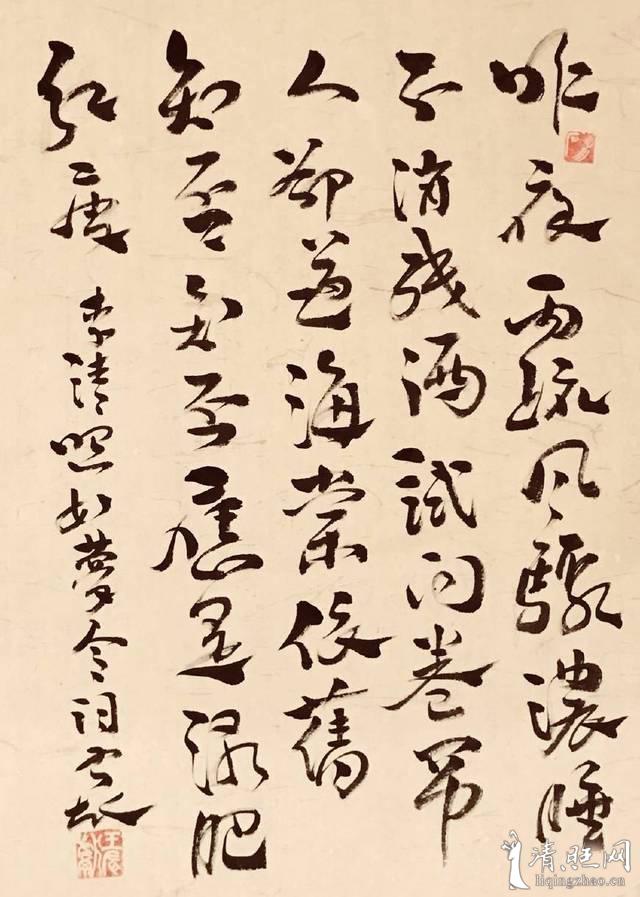 昨夜雨疏风驟濃睡
不消残酒試问卷帘
人卻道海棠依舊
知否知否應是綠肥
紅瘦
李清照如夢令詞
清旺网
liqingzhao.cn